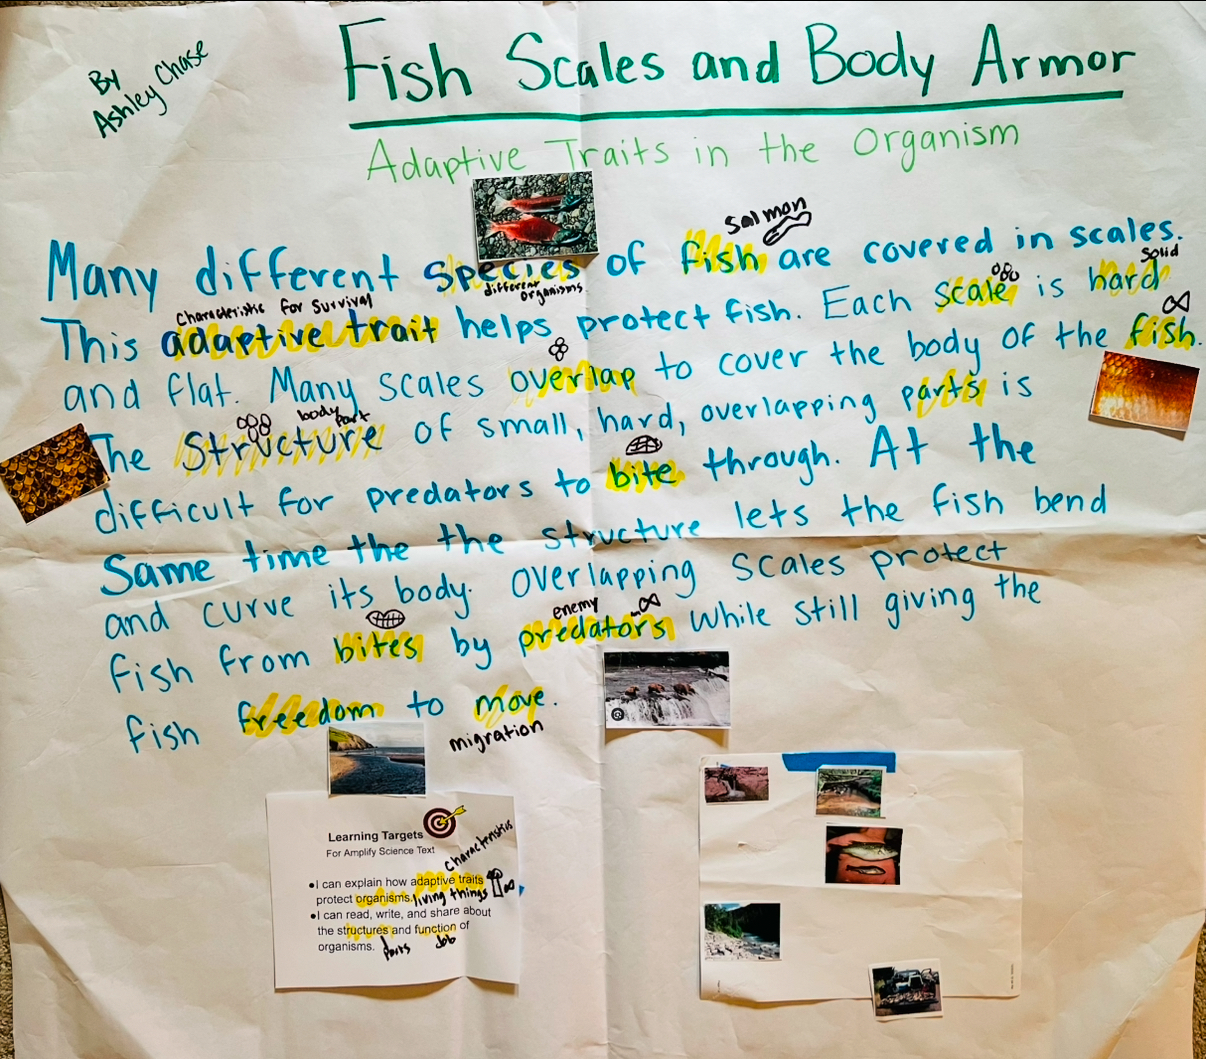 By
Ashley Chase
Fish Scales and Body Armor
Adaptive Traits in the Organism
salmon
Many different species of fish are covered in scales.
different organisms
solid
Characteristic for survival
This adaptive trait helps protect fish. Each scale is hard
and flat. Many scales overlap to cover the body of the fish.
body part
The structure of small, hard, overlapping parts is
difficult for predators to bite through. At the
Same time the the the structure lets the fish bend
and curve its body. Overlapping scales protect
enemy
fish from bites by predators while still giving the
fish freedom to move.
migration
Learning Targets
For Amplify Science Text
characteristics
•I can explain how adaptive traits
protect organisms. living things
•I can read, write, and share about
the structures and function of
organisms. parts Job